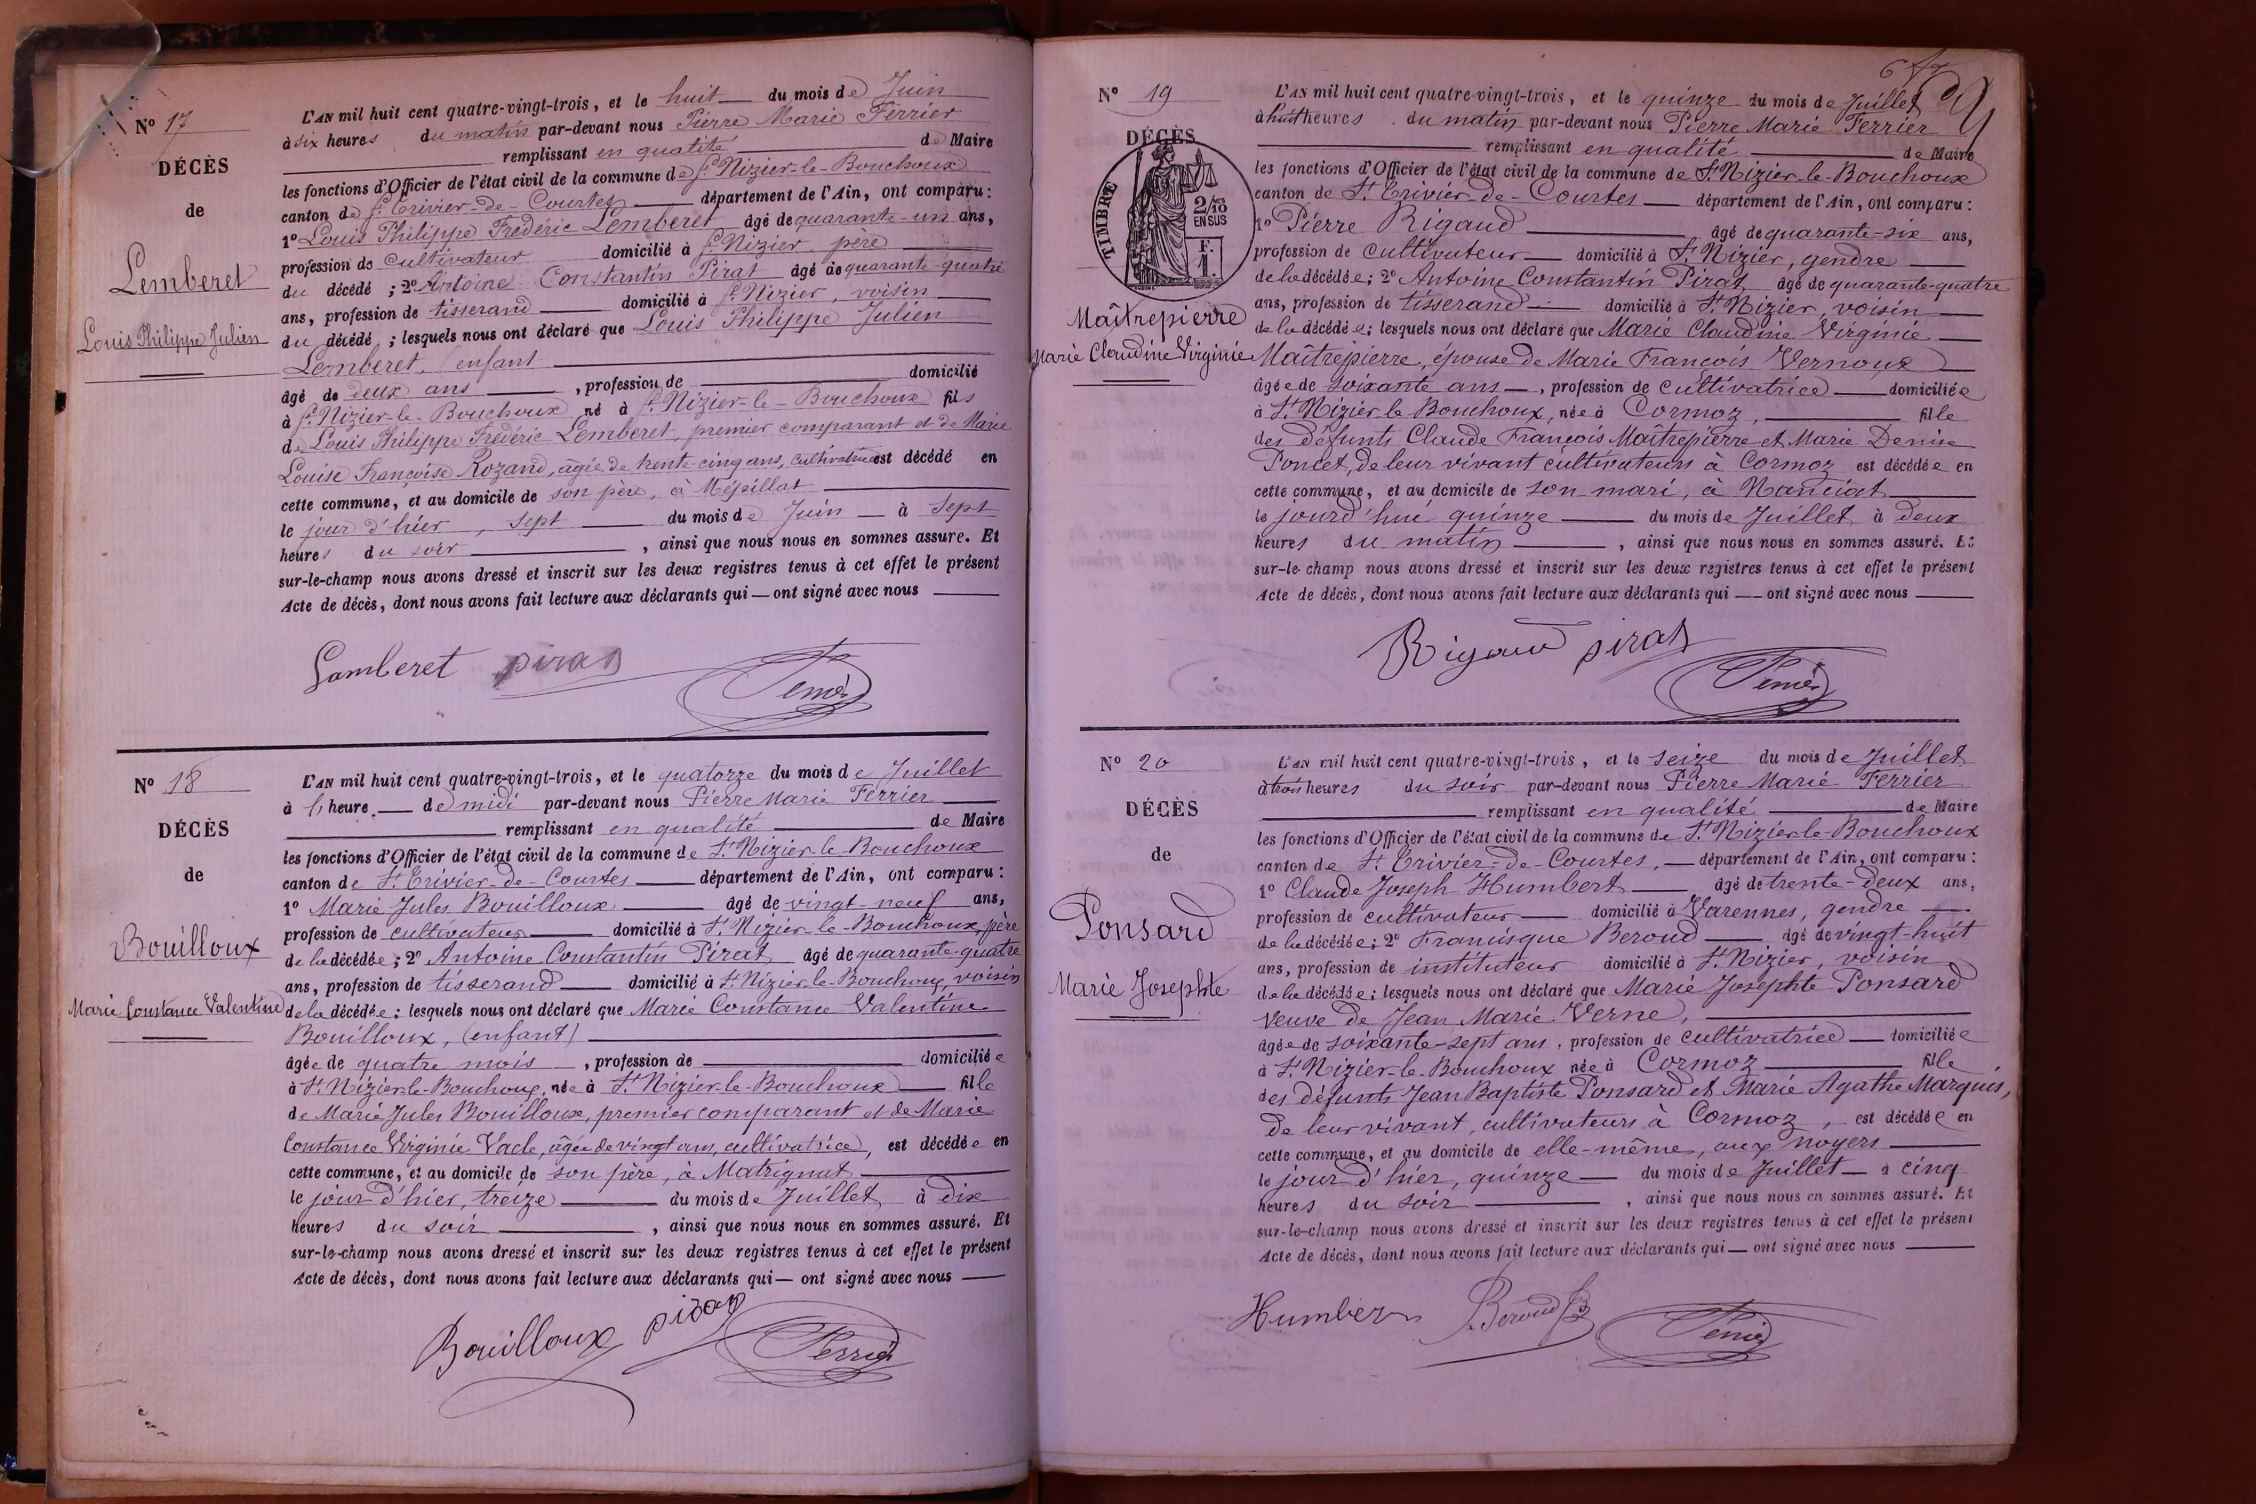 N° 17
DÉCÈS
de
Lemberet
Louis Philippe Julien
L'AN mil huit cent quatre-vingt-trois, et le huit du mois de Juin
à six heures du matin par-devant nous Pierre Marie Ferrier
remplissant en qualité de Maire
les fonctions d'Officier de l'état civil de la commune de St Nizier-le-Bouchoux
canton de St Trivier-de-Courtes département de l'Ain, ont comparu:
1° Louis Philippe Frédéric Lemberet âgé de quarante-un ans,
profession de cultivateur domicilié à St Nizier, père
du décédé ; 2° Antoine Constantin Pirat âgé de quarante-quatre
ans, profession de tisserand domicilié à St Nizier, voisin
du décédé ; lesquels nous ont déclaré que Louis Philippe Julien
Lemberet, enfant
âgé de deux ans , profession de domicilié
à St Nizier-le-Bouchoux né à St Nizier-le-Bouchoux fils
de Louis Philippe Frédéric Lemberet, premier comparant et de Marie
Louise Françoise Rozand, âgée de trente-cinq ans, cultivateurs est décédé en
cette commune, et au domicile de son père, à Mépillat
le jour d'hier, sept du mois de Juin à sept
heures du soir , ainsi que nous nous en sommes assuré. Et
sur-le-champ nous avons dressé et inscrit sur les deux registres tenus à cet effet le présent
Acte de décès, dont nous avons fait lecture aux déclarants qui — ont signé avec nous
Lamberet pirat Ferrier
N° 18
DÉCÈS
de
Bouilloux
Marie Constance Valentine
L'AN mil huit cent quatre-vingt-trois, et le quatorze du mois de Juillet
à heure de midi par-devant nous Pierre Marie Ferrier
remplissant en qualité de Maire
les fonctions d'Officier de l'état civil de la commune de St Nizier-le-Bouchoux
canton de St Trivier-de-Courtes département de l'Ain, ont comparu:
1° Marie Jules Bouilloux âgé de vingt-neuf ans,
profession de cultivateur domicilié à St Nizier-le-Bouchoux, père
de la décédée ; 2° Antoine Constantin Pirat âgé de quarante-quatre
ans, profession de tisserand domicilié à St Nizier-le-Bouchoux, voisin
de la décédée : lesquels nous ont déclaré que Marie Constance Valentine
Bouilloux, (enfant)
âgée de quatre mois , profession de domiciliée
à St Nizier-le-Bouchoux, née à St Nizier-le-Bouchoux fille
de Marie Jules Bouilloux, premier comparant et de Marie
Constance Virginie Vacle, âgée de vingt ans, cultivatrice, est décédée en
cette commune, et au domicile de son père, à Matrignat
le jour d'hier, treize du mois de Juillet à dix
heures du soir , ainsi que nous nous en sommes assuré. Et
sur-le-champ nous avons dressé et inscrit sur les deux registres tenus à cet effet le présent
Acte de décès, dont nous avons fait lecture aux déclarants qui — ont signé avec nous
Bouilloux pirat Ferrier
N° 19
DÉCÈS
TIMBRE
2/10 EN SUS
F. 1.
Maîtrepierre
Marie Claudine Virginie
L'AN mil huit cent quatre-vingt-trois, et le quinze du mois de Juillet
à huit heures du matin par-devant nous Pierre Marie Ferrier
remplissant en qualité de Maire
les fonctions d'Officier de l'état civil de la commune de St Nizier-le-Bouchoux
canton de St Trivier-de-Courtes département de l'Ain, ont comparu:
1° Pierre Rigaud âgé de quarante-six ans,
profession de cultivateur domicilié à St Nizier, gendre
de la décédée ; 2° Antoine Constantin Pirat âgé de quarante-quatre
ans, profession de tisserand domicilié à St Nizier, voisin
de la décédée ; lesquels nous ont déclaré que Marie Claudine Virginie
Maîtrepierre, épouse de Marie François Vernoux
âgée de soixante ans , profession de cultivatrice domiciliée
à St Nizier le Bouchoux, née à Cormoz, fille
des défunts Claude François Maîtrepierre et Marie Denise
Poncet, de leur vivant cultivateurs à Cormoz est décédée en
cette commune, et au domicile de son mari, à Nanciat
le jourd'hui quinze du mois de Juillet à deux
heures du matin , ainsi que nous nous en sommes assuré. Et
sur-le-champ nous avons dressé et inscrit sur les deux registres tenus à cet effet le présent
Acte de décès, dont nous avons fait lecture aux déclarants qui — ont signé avec nous
Rigaud pirat Ferrier
N° 20
DÉCÈS
de
Ponsard
Marie Josephte
L'AN mil huit cent quatre-vingt-trois, et le seize du mois de Juillet
à trois heures du soir par-devant nous Pierre Marie Ferrier
remplissant en qualité de Maire
les fonctions d'Officier de l'état civil de la commune de St Nizier-le-Bouchoux
canton de St Trivier-de-Courtes, département de l'Ain, ont comparu:
1° Claude Joseph Humbert âgé de trente-deux ans,
profession de cultivateur domicilié à Varennes, gendre
de la décédée ; 2° Francisque Beroud âgé de vingt-huit
ans, profession de instituteur domicilié à St Nizier, voisin
de la décédée ; lesquels nous ont déclaré que Marie Josephte Ponsard
Veuve de Jean Marie Verne,
âgée de soixante-sept ans, profession de cultivatrice domiciliée
à St Nizier-le-Bouchoux née à Cormoz fille
des défunts Jean Baptiste Ponsard et Marie Agathe Marquis,
de leur vivant, cultivateurs à Cormoz, est décédée en
cette commune, et au domicile de elle-même, aux noyers
le jour d'hier, quinze du mois de Juillet à cinq
heures du soir , ainsi que nous nous en sommes assuré. Et
sur-le-champ nous avons dressé et inscrit sur les deux registres tenus à cet effet le présent
Acte de décès, dont nous avons fait lecture aux déclarants qui — ont signé avec nous
Humbert Beroud Ferrier